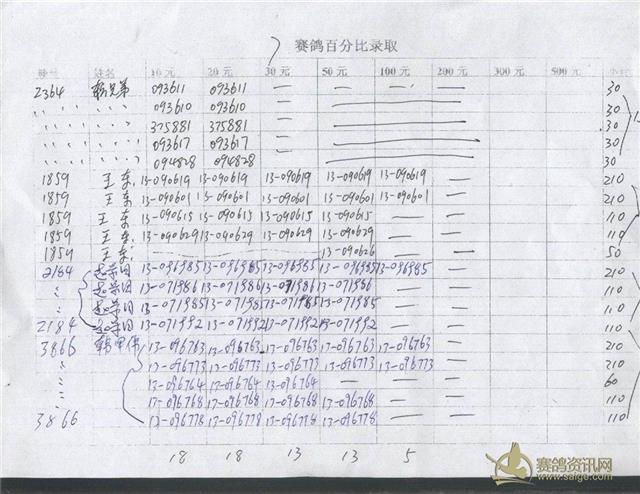 赛鸽百分比录取
姓名 10元 20元 30元 50元 100元 200元 300元 500元
2364 093611 093611 — — — — 30
〃 〃 〃 〃 093610 093610 — 30
〃 〃 〃 〃 375881 375881 — 30
〃 〃 〃 〃 093617 093617 — 30
〃 〃 〃 〃 094828 094828 30
1859 王东 13-090619 13-090619 13-090619 13-090619 13-090619 — 210
1859 王东 13-090601 13-090601 13-090601 13-090601 13-090601 — 210
1859 王东 13-090615 13-090615 13-090615 13-090615 — — 110
1859 王东 13-090629 13-090629 13-090629 13-090629 — — 110
1859 王东 13-090626 — — 50
2184 13-096985 13-096985 13-096985 13-096985 13-096985 — 210
〃 13-071986 13-071986 13-071986 13-071986 — — 110
〃 13-071985 13-071985 13-071985 13-071985 — — 110
2184 13-071992 13-071992 13-071992 13-071992 — — 110
3866 13-096763 13-096763 13-096763 13-096763 13-096763 — 210
〃 13-096773 13-096773 13-096773 13-096773 13-096773 — 210
〃 13-096764 13-096764 13-096764 — — — 60
〃 13-096768 13-096768 13-096768 13-096768 — — 110
3866 13-096778 13-096778 13-096778 13-096778 — — 110
18 18 13 13 5
赛鸽资讯网
www.saige.com